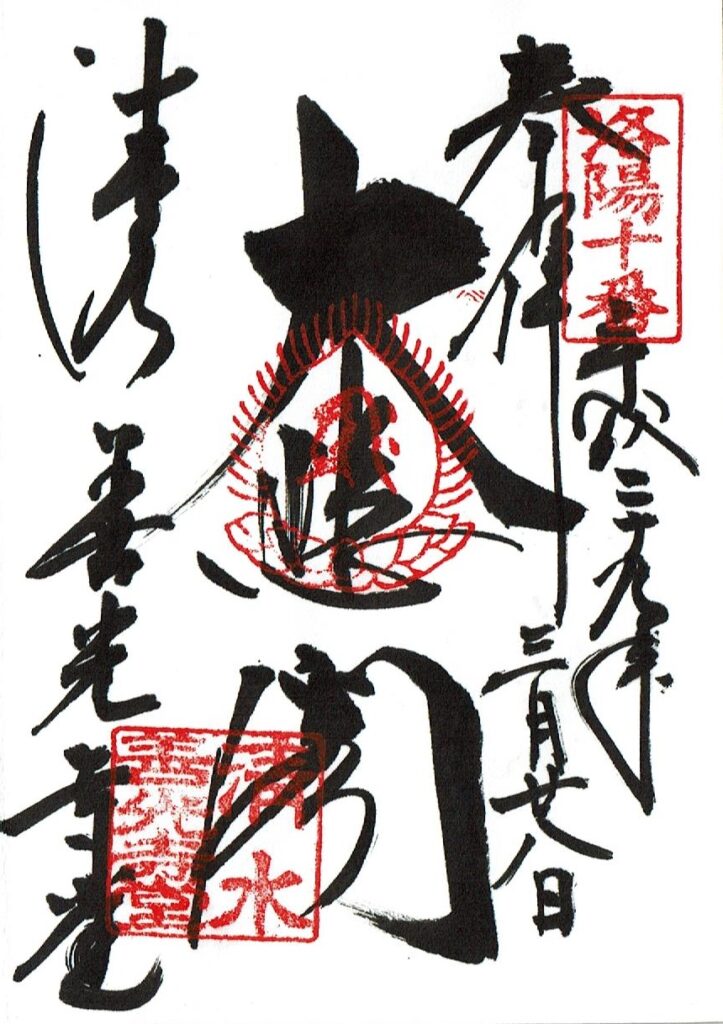 奉拝
洛陽十番
平成二十九年
三月廿八日
大悲閣
清水
善光寺堂
清水
善光寺堂